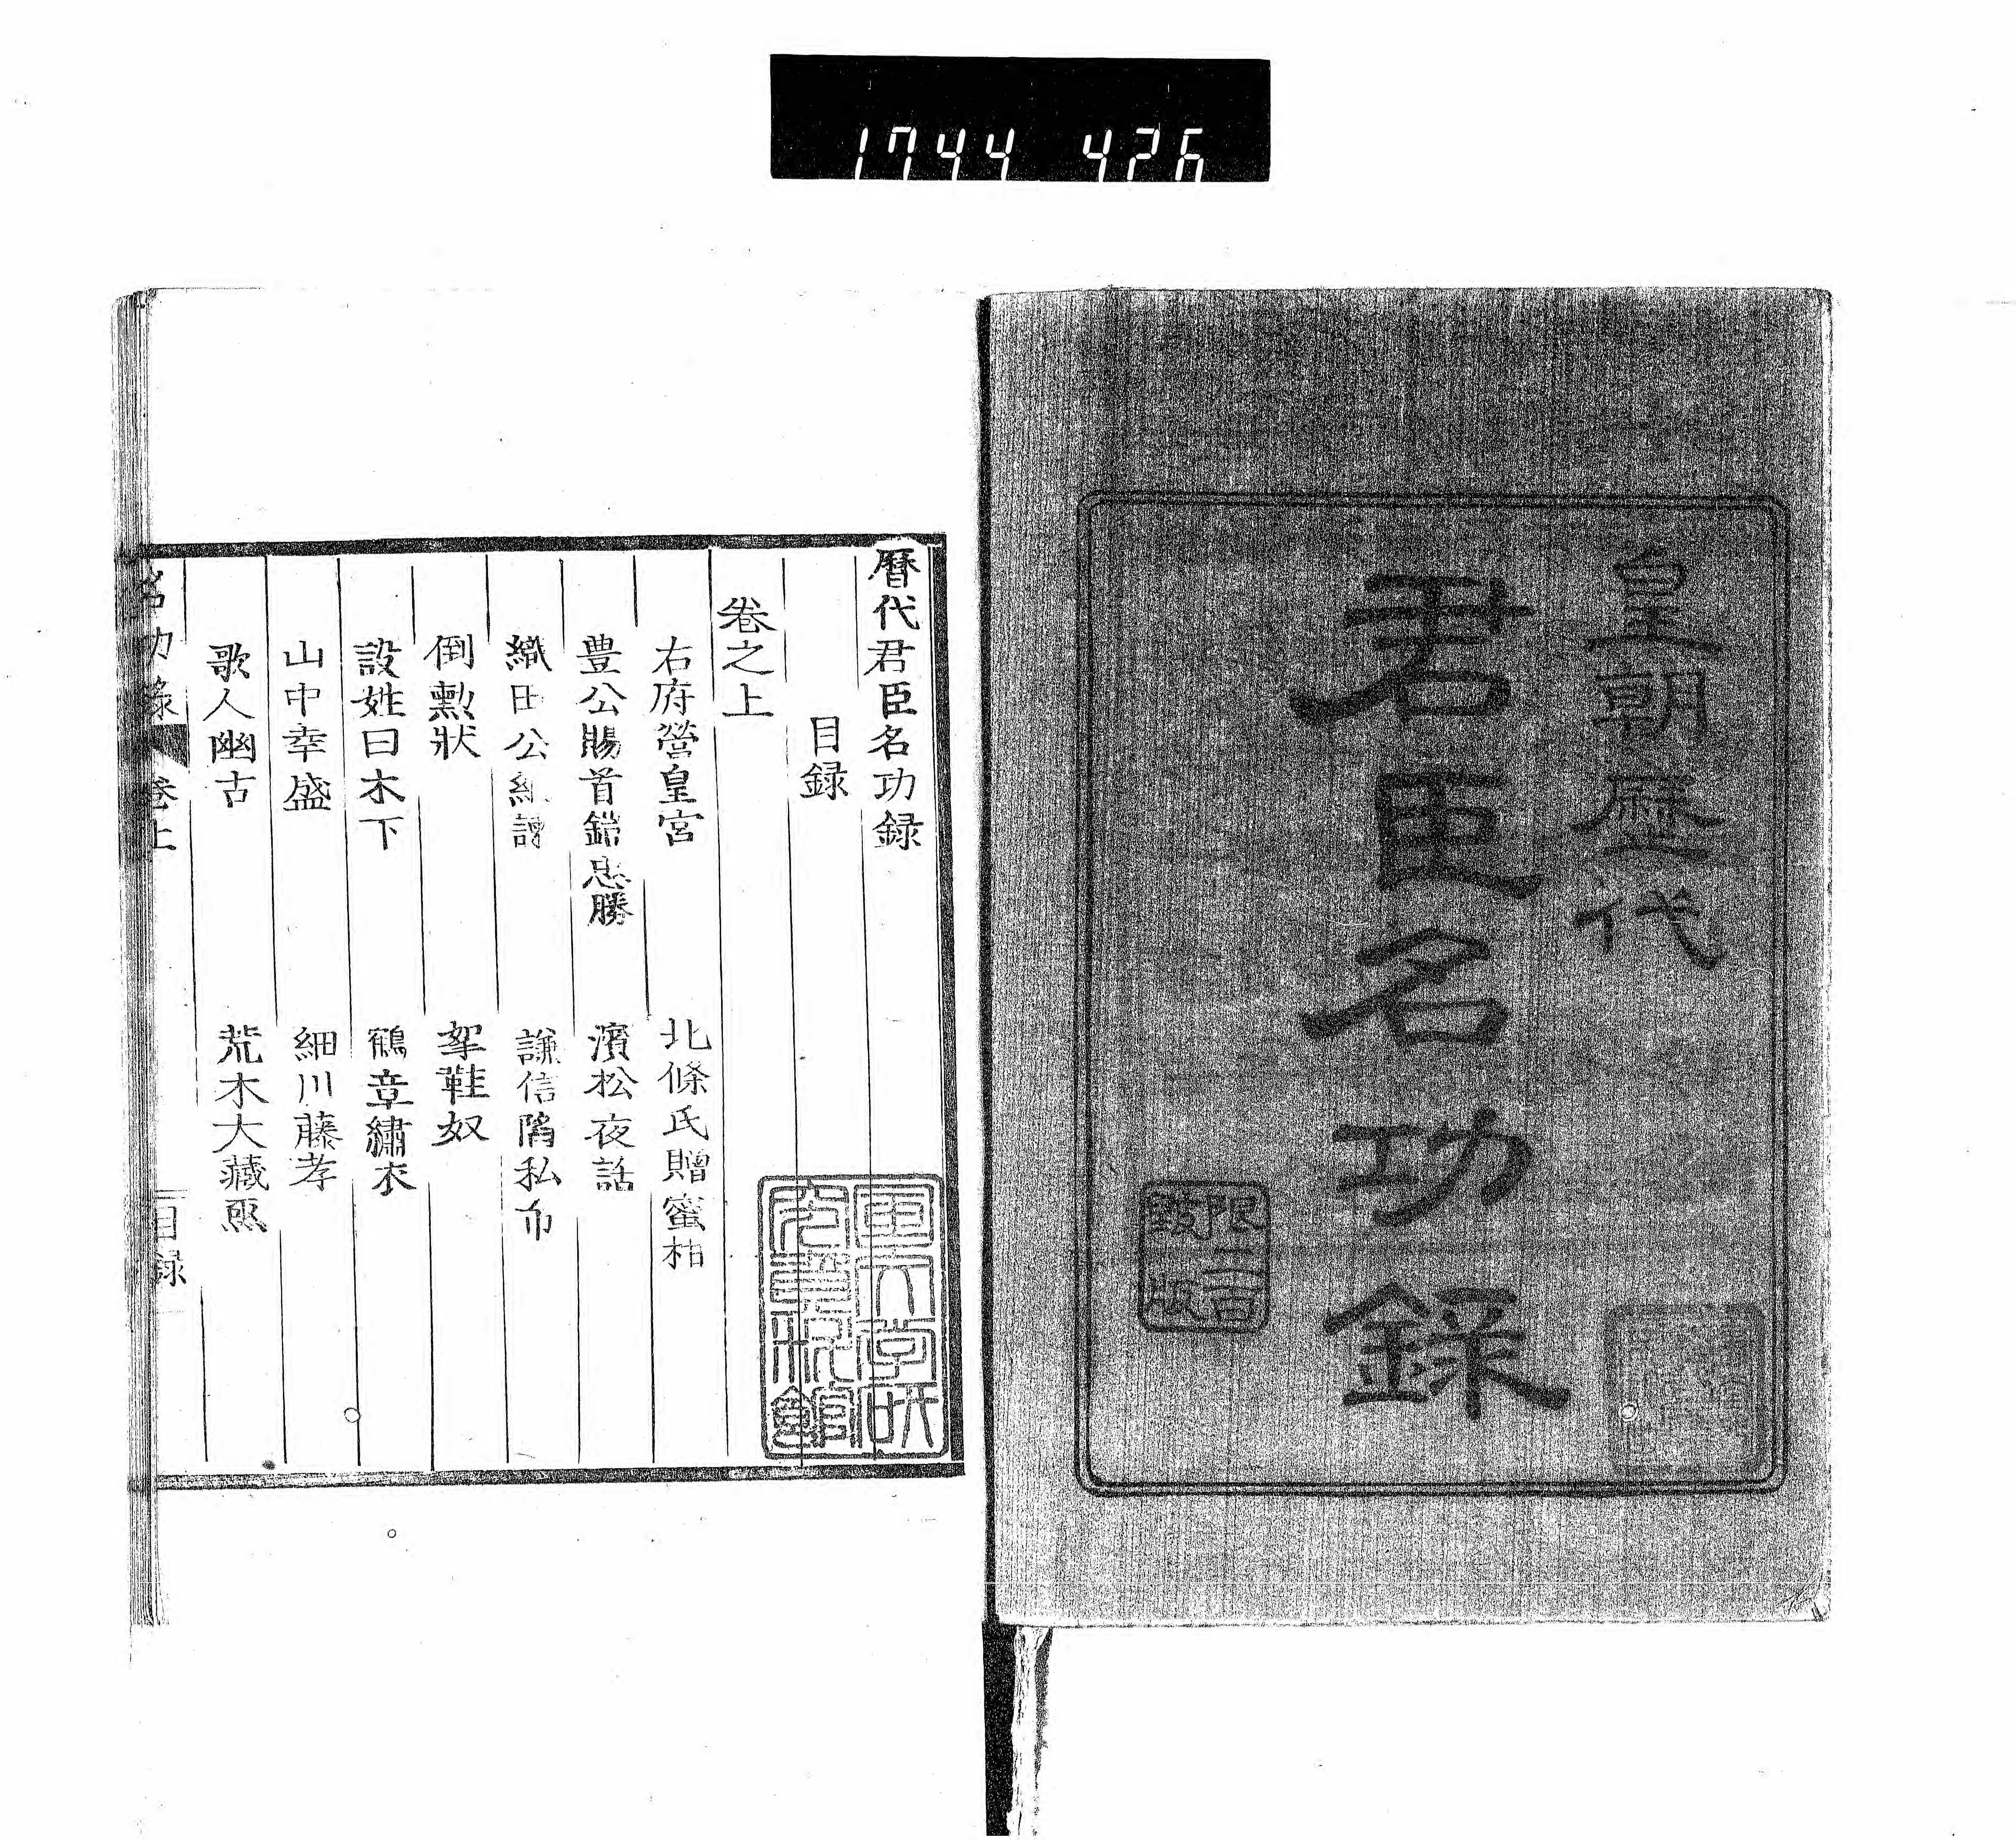 1744 426
皇朝歷代
君臣名功錄
限二百
部
版
暦代君臣名功録
目録
卷之上
右府營皇宮
北條氏贈蜜柑
豊公賜首鎧忠勝
濱松夜話
織田公
謙信
私
倒勲狀
挈鞋奴
設姓曰木下
鶴章繡衣
山中幸盛
細川藤孝
歌人幽古
荒木大藏
名功錄
卷上
目録